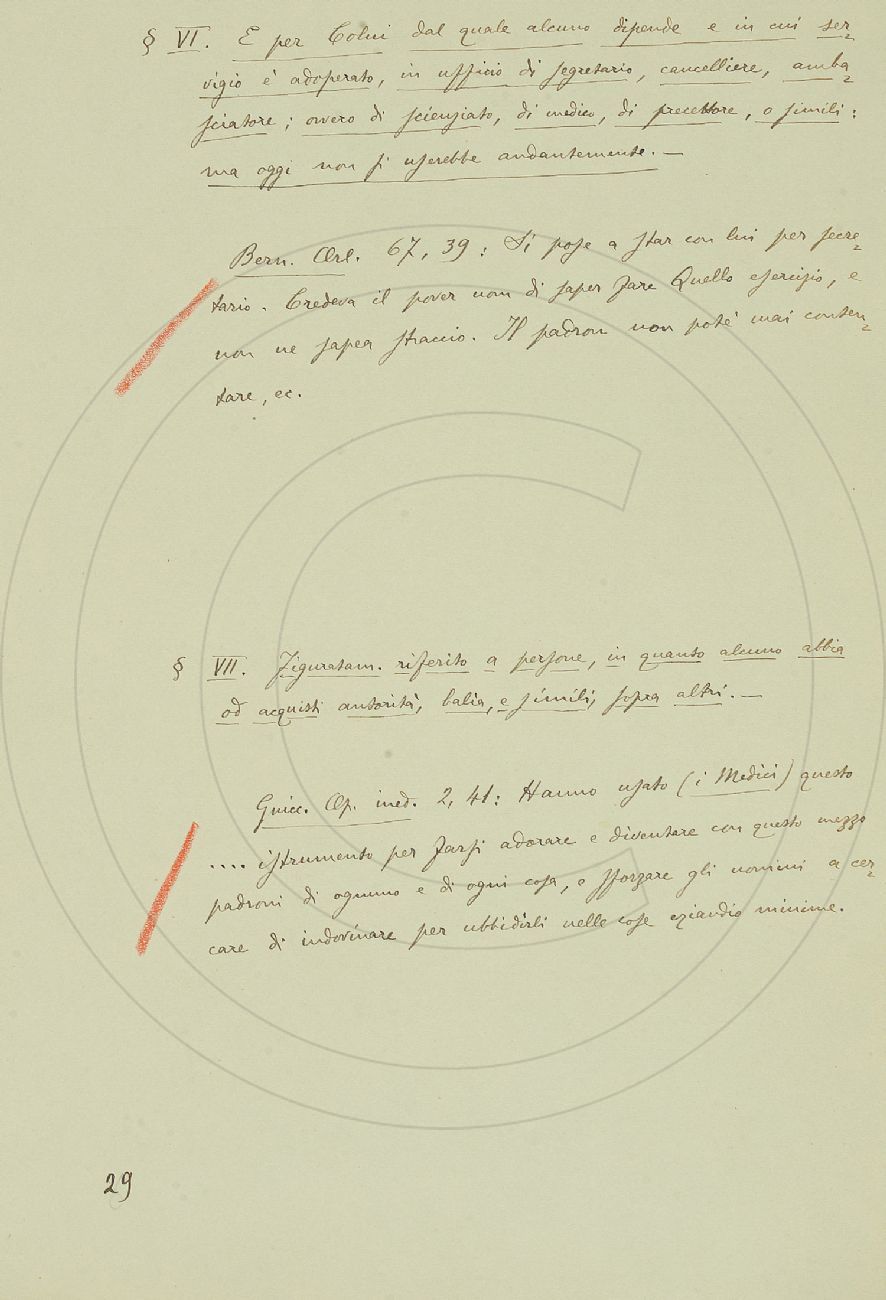 § VI. E per Colui dal quale alcuno dipende e in cui ser-
vigio è adoperato, in ufficio di segretario, cancelliere, amba-
sciatore; ovvero di scienziato, di medico, di precettore, o simili:
ma oggi non si userebbe andantemente. —
Bern. Orl. 67, 39: Si pose a star con lui per secre-
tario. Credeva il pover uom di saper fare Quello esercizio, e
non ne sapea straccio. Il padron non potè mai conten-
tare, ec.
§ VII. Figuratam. riferito a persone, in quanto alcuno abbia
od acquisti autorità, balìa, e simili, sopra altri. —
Guicc. Op. ined. 2, 41: Hanno usato (i Medici) questo
.... istrumento per farsi adorare e diventare con questo mezzo
padroni di ognuno e di ogni cosa, e sforzare gli uomini a cer-
care di indovinare per ubbidirli nelle cose eziandio minime.
29